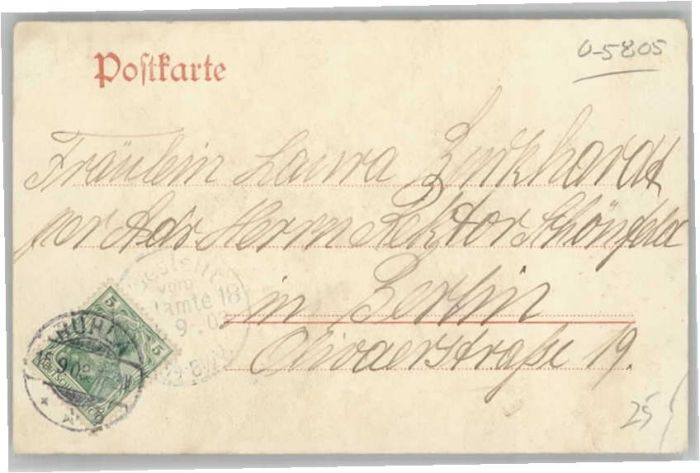 Postkarte
0-5805
Fräulein Laura Burkhardt
per Adr Herrn Rektor Schönfeld
in Berlin
Olivaerstraße 19.
Bestellt
vom
amte 18
5
5
25